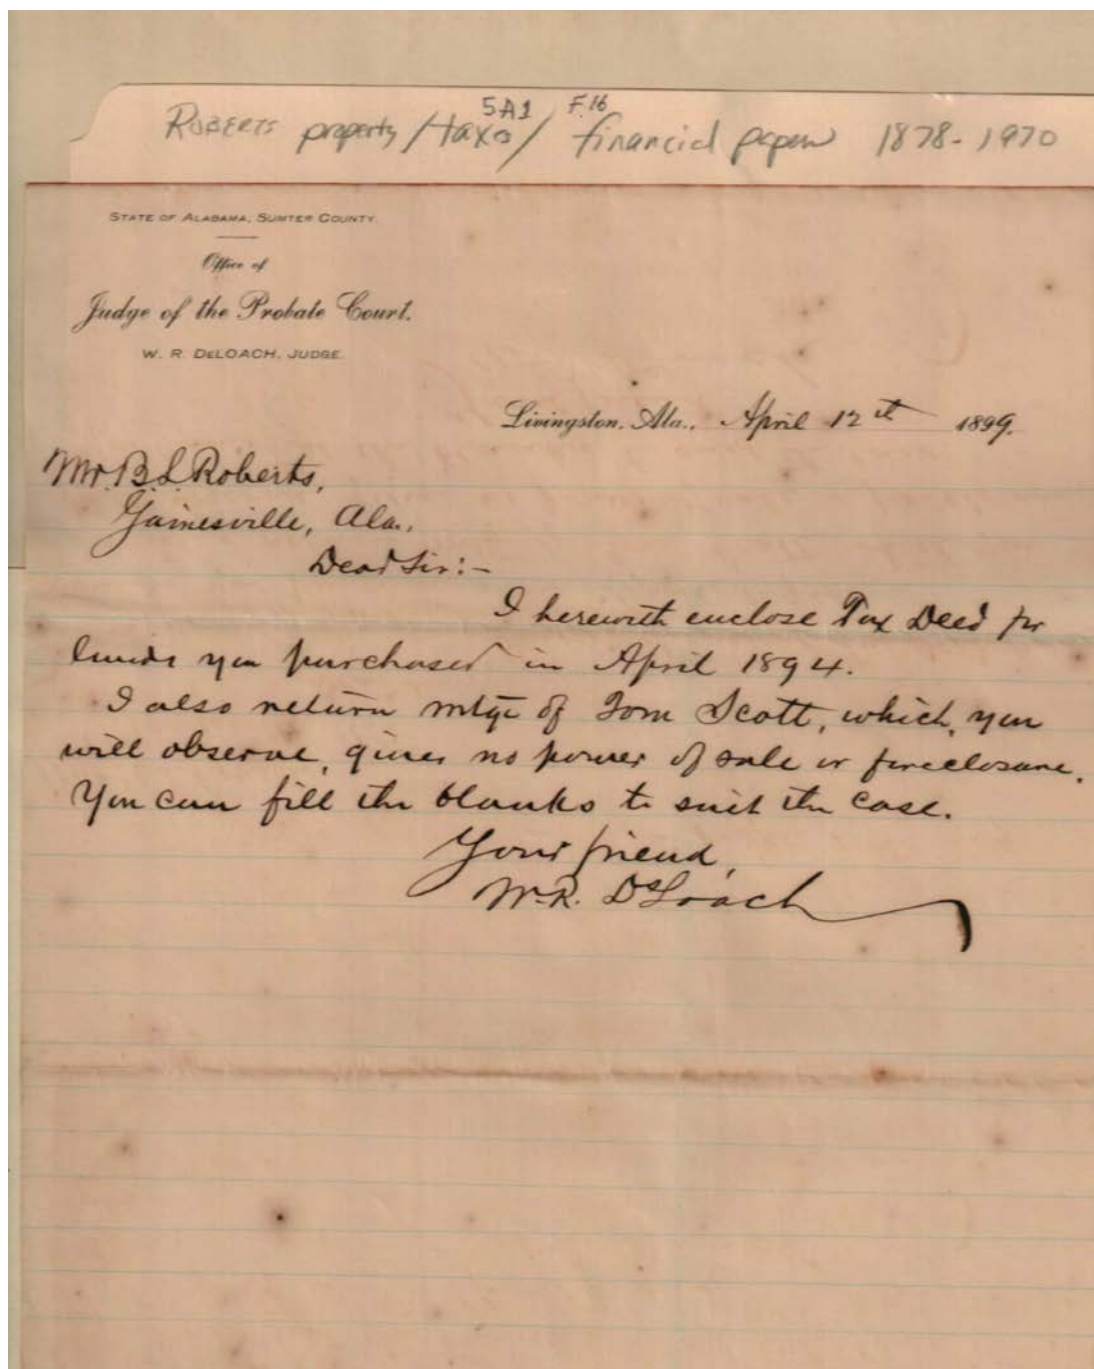 5A1 F.16
ROBERTS property / taxes / financial papers 1878-1970
STATE OF ALABAMA, SUMTER COUNTY.
Office of
Judge of the Probate Court.
W. R. DELOACH, JUDGE.
Livingston, Ala., April 12th 1899.
Mr. B. L. Roberts,
Gainesville, Ala.,
Dear Sir:-
I herewith enclose Tax Deed for
lands you purchased in April 1894.
I also return mtge of Tom Scott, which, you
will observe, gives no power of sale or foreclosure.
You can fill the blanks to suit the case.
Your friend,
W.R. DeLoach